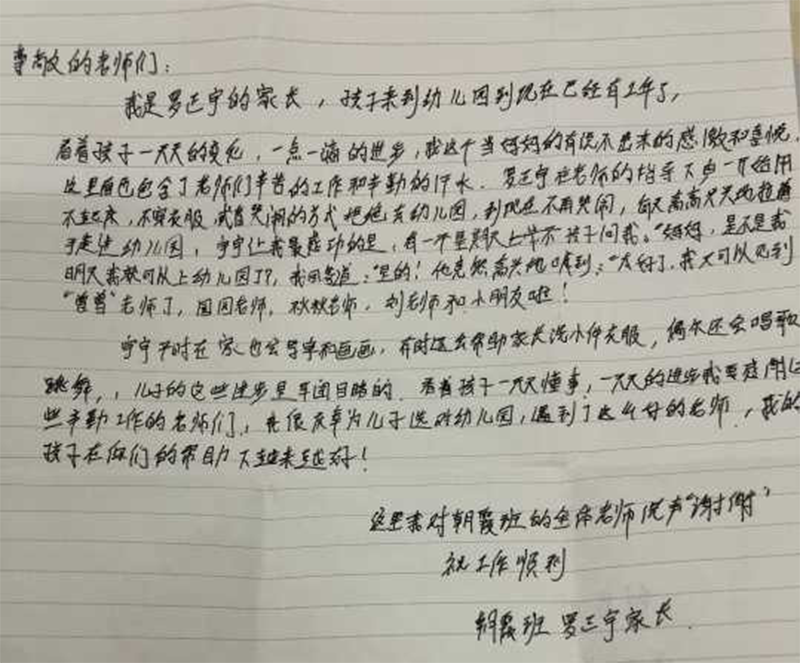 尊敬的老师们：
我是罗正宇的家长，孩子来到幼儿园到现在已经有2年了，
看着孩子一天天的变化，一点一滴的进步，我这个当妈妈的有说不出来的感激和喜悦，
这里面包含了老师们辛苦的工作和辛勤的汗水。罗正宇在老师的指导下由一开始用
不起床，不穿衣服，或者哭闹的方式拒绝去幼儿园，到现在不再哭闹，每天高高兴兴地拉着
手走进幼儿园，宇宇让我最感动的是，有一个星期天上午孩子问我。“妈妈，是不是我
明天我就可以上幼儿园了？我回答道：“是的！他竟然高兴地喊到：“太好了，我又可以见到
“曾曾”老师了，园园老师，秋秋老师，刘老师和小朋友啦！
宇宇平时在家也会写字和画画，有时还会帮助家长洗小件衣服，偶尔还会唱歌
跳舞，，儿子的这些进步是有闭目睹的。看着孩子一天天懂事，一天天的进步我要感谢这
些辛勤工作的老师们，我很庆幸为儿子选对幼儿园，遇到了这么好的老师，我的
孩子在你们的帮助下越来越好！
这里我对朝霞班的全体老师说声“谢谢”
祝工作顺利
朝霞班 罗正宇家长